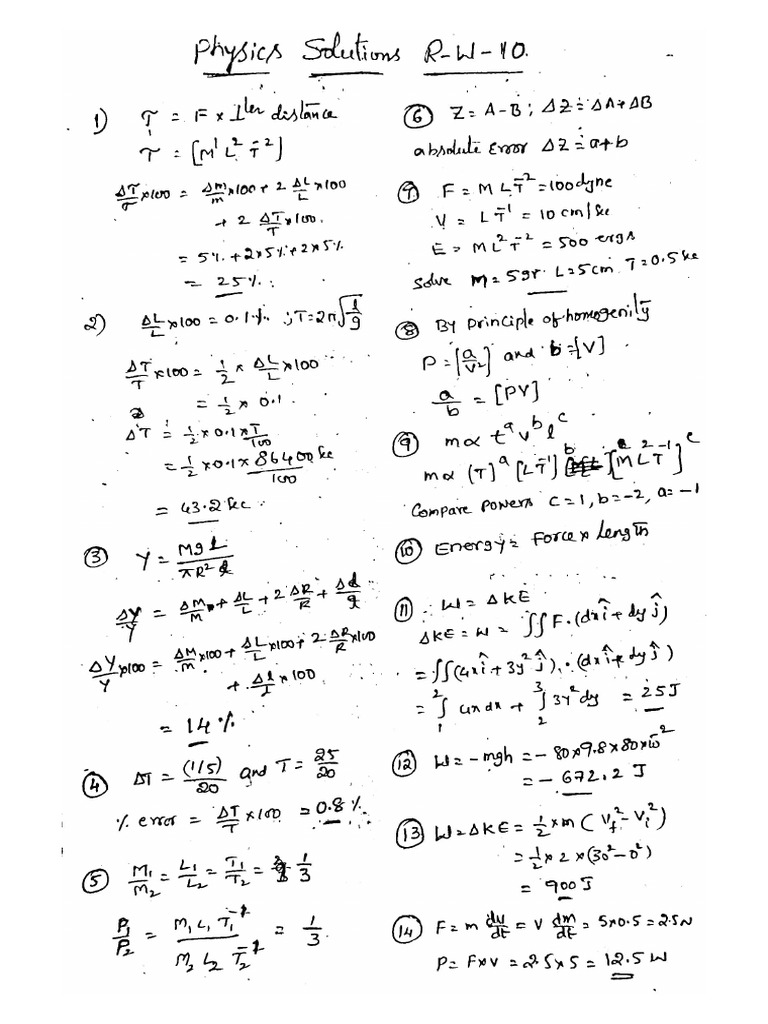 Physics Solutions R-W-10.
1) τ = F × ⊥ler distance
τ = [M¹ L² T⁻²]
Δτ/τ ×100 = Δm/m ×100 + 2 ΔL/L ×100
+ 2 ΔT/T ×100.
= 5% + 2×5% + 2×5%
= 25%.
2) ΔL/L ×100 = 0.1% ; T = 2π√(l/g)
ΔT/T ×100 = 1/2 × ΔL/L ×100
= 1/2 × 0.1
ΔT = 1/2 × 0.1 × T/100
= 1/2 × 0.1 × 86400 sec/100
= 43.2 sec.
③ Y = MgL/πR²l
ΔY/Y = ΔM/M + ΔL/L + 2 ΔR/R + Δl/l
ΔY/Y ×100 = ΔM/M ×100 + ΔL/L ×100 + 2 ΔR/R ×100
+ Δl/l ×100
= 14%
④ ΔT = (1/5)/20 and T = 25/20
% error = ΔT/T ×100 = 0.8%
⑤ M₁/M₂ = L₁/L₂ = T₁/T₂ = 1/3
P₁/P₂ = M₁ L₁ T₁⁻²/M₂ L₂ T₂⁻² = 1/3
⑥ Z = A-B ; ΔZ = ΔA + ΔB
absolute Error ΔZ = a+b
⑦ F = M L T⁻² = 100 dyne
V = L T⁻¹ = 10 cm/sec
E = M L² T⁻² = 500 ergs
Solve M = 5gr. L = 5cm T = 0.5 sec
⑧ By principle of homogenity
P = [a/V²] and b = [V]
a/b = [PV]
⑨ m ∝ t^a v^b l^c
m ∝ (T)^a [LT⁻¹]^b [M L² T⁻¹]^c
Compare Powers c = 1, b = -2, a = -1
⑩ Energy = Force × length
⑪ W = ΔKE
ΔKE = W = ∫∫ F.(dx î + dy ĵ)
= ∫∫(4x î + 3y² ĵ).(dx î + dy ĵ)
= ∫₁² 4x dx + ∫₂³ 3y² dy = 25 J
⑫ W = -mgh = - 80×9.8×80×10⁻²
= - 672.2 J
⑬ W = ΔKE = 1/2 × m (Vf² - Vi²)
= 1/2 × 2 × (30² - 0²)
= 900 J
⑭ F = m dv/dt = v dm/dt = 5×0.5 = 2.5 N
P = F×v = 2.5×5 = 12.5 W